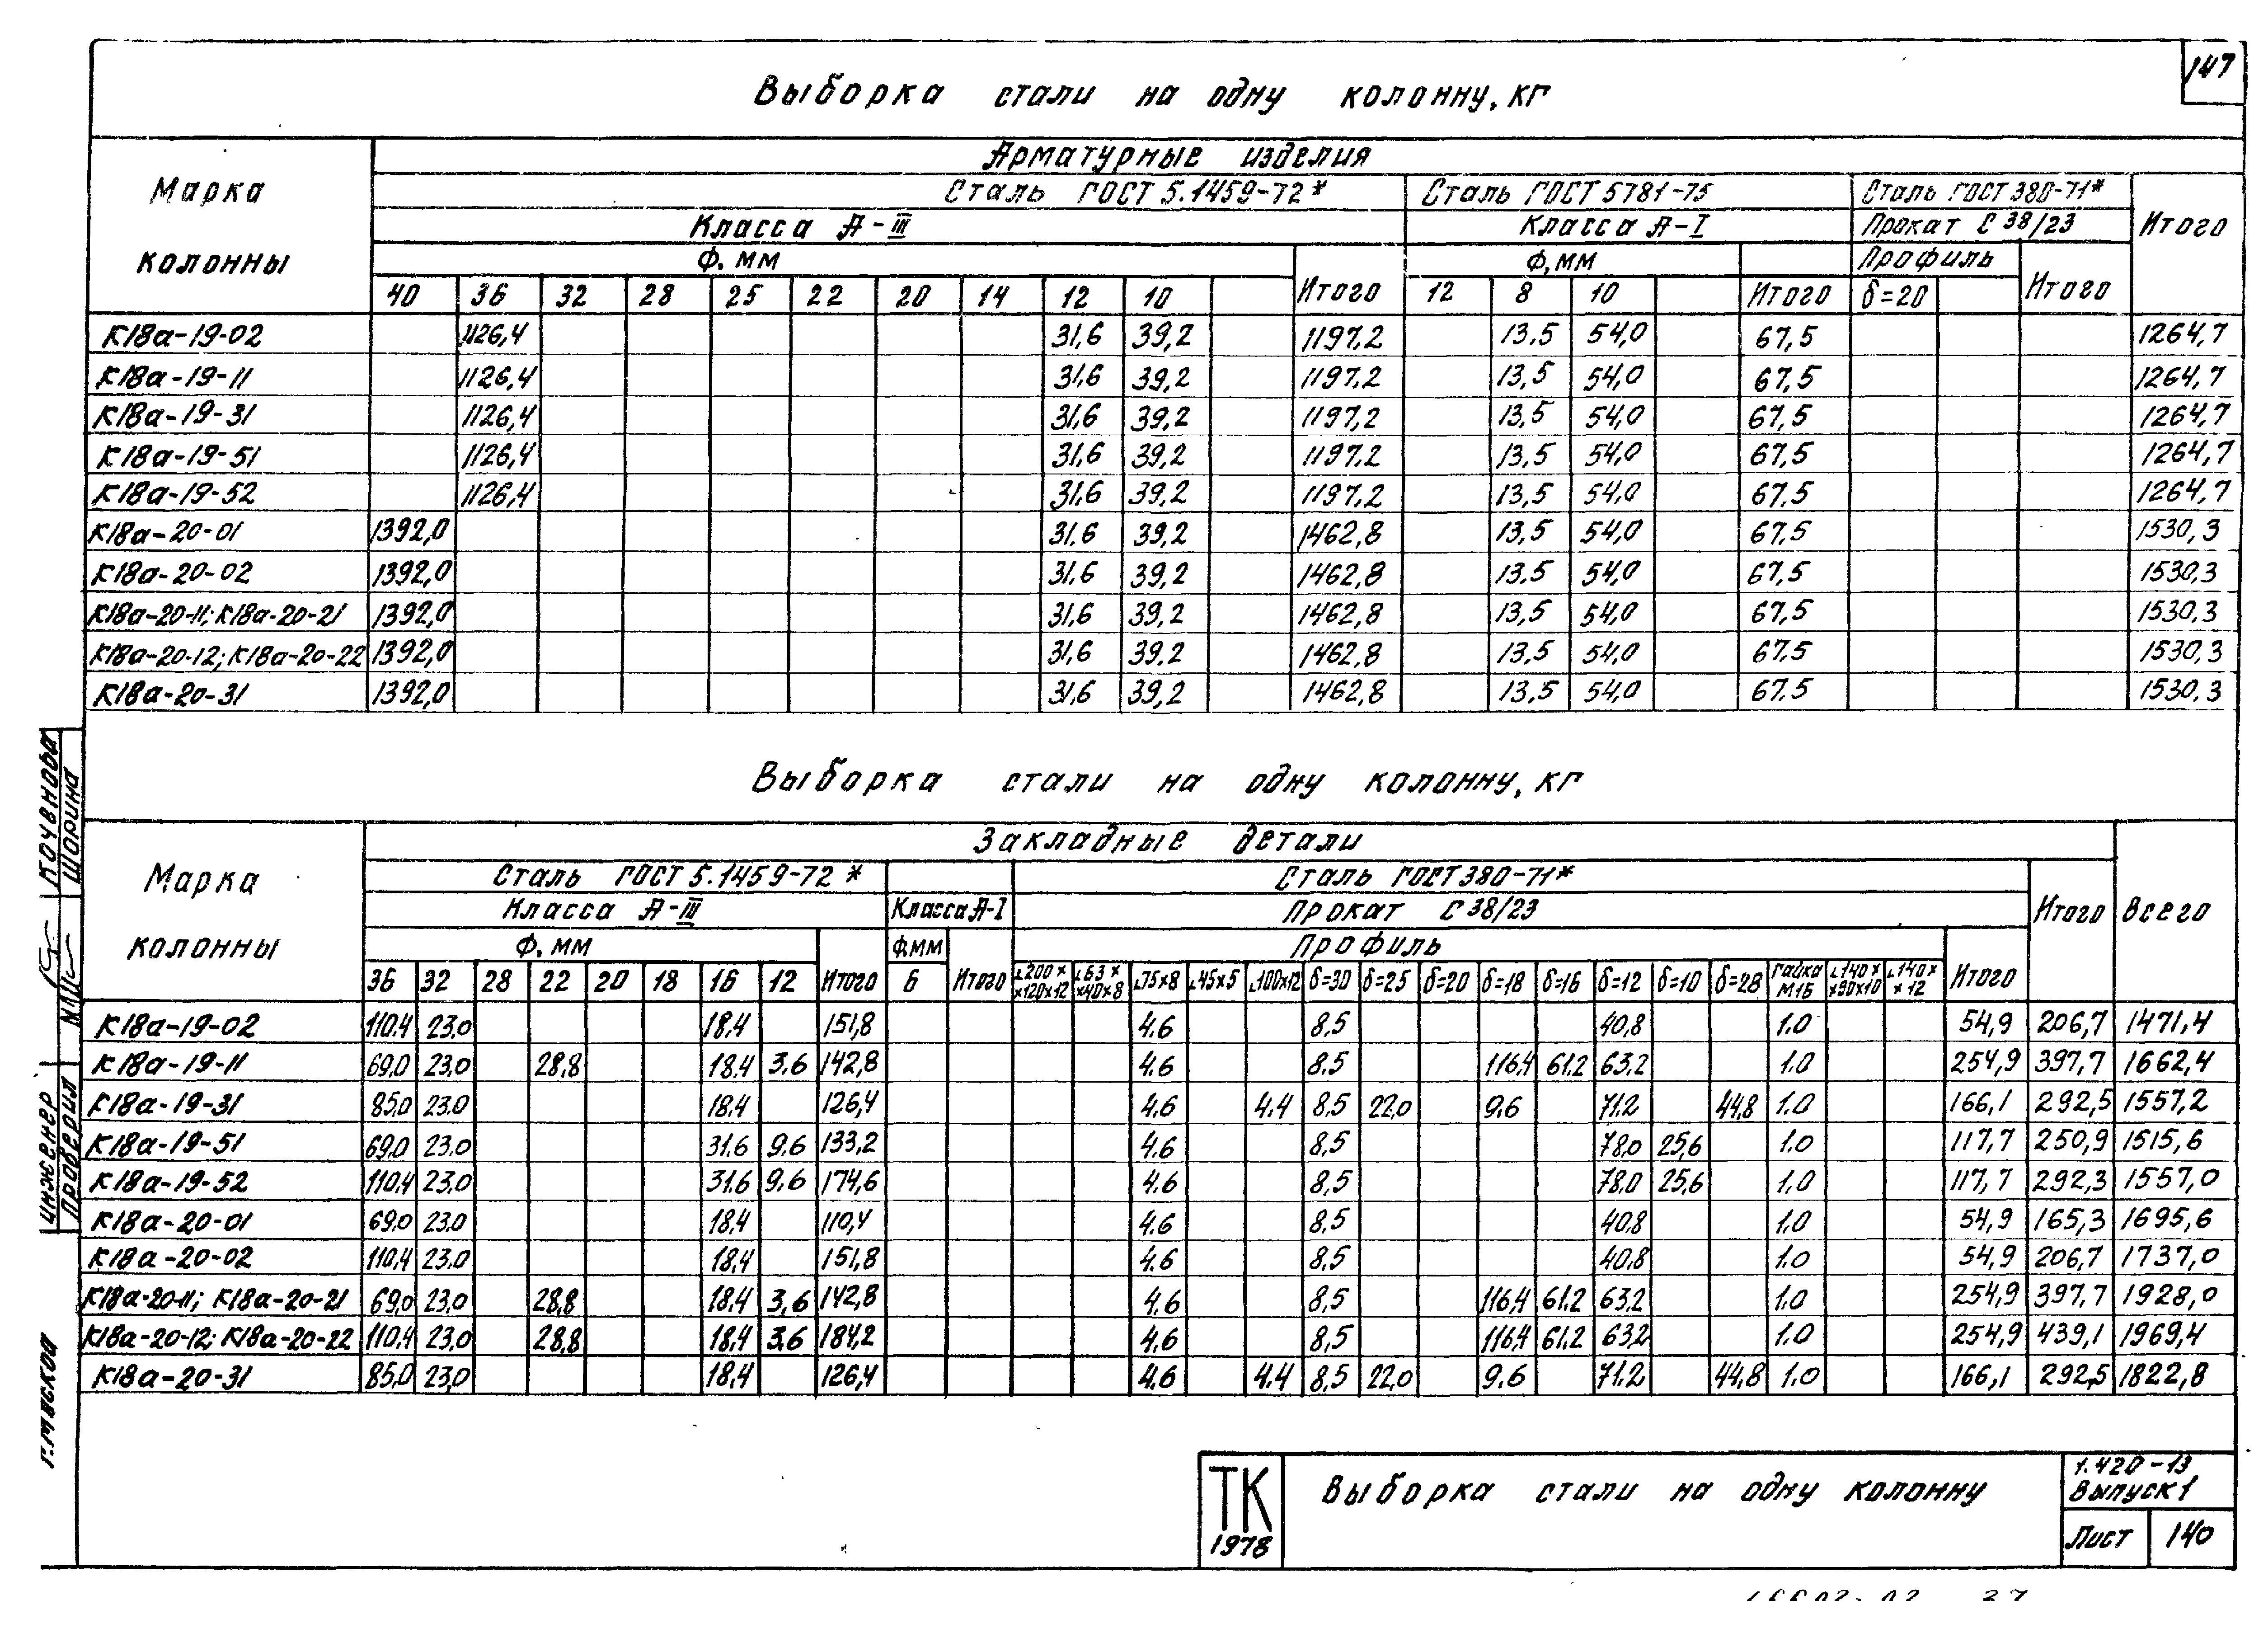 147
Выборка стали на одну колонну, кг
Марка колонны
Арматурные изделия
Сталь ГОСТ 5.1459-72* Сталь ГОСТ 5781-75 Сталь ГОСТ 380-71* Итого
Класса А-III Класса А-I Прокат С 38/23
Ф, мм Итого Ф, мм Итого Профиль Итого
40 36 32 28 25 22 20 14 12 10 12 8 10 δ=20
К18а-19-02 1126,4 31,6 39,2 1197,2 13,5 54,0 67,5 1264,7
К18а-19-11 1126,4 31,6 39,2 1197,2 13,5 54,0 67,5 1264,7
К18а-19-31 1126,4 31,6 39,2 1197,2 13,5 54,0 67,5 1264,7
К18а-19-51 1126,4 31,6 39,2 1197,2 13,5 54,0 67,5 1264,7
К18а-19-52 1126,4 31,6 39,2 1197,2 13,5 54,0 67,5 1264,7
К18а-20-01 1392,0 31,6 39,2 1462,8 13,5 54,0 67,5 1530,3
К18а-20-02 1392,0 31,6 39,2 1462,8 13,5 54,0 67,5 1530,3
К18а-20-11; К18а-20-21 1392,0 31,6 39,2 1462,8 13,5 54,0 67,5 1530,3
К18а-20-12; К18а-20-22 1392,0 31,6 39,2 1462,8 13,5 54,0 67,5 1530,3
К18а-20-31 1392,0 31,6 39,2 1462,8 13,5 54,0 67,5 1530,3
Выборка стали на одну колонну, кг
Марка колонны
Закладные детали
Сталь ГОСТ 5.1459-72* Сталь ГОСТ 380-71* Итого Всего
Класса А-III Класса А-I Прокат С 38/23
Ф, мм Итого Ф, мм Итого Профиль Итого
36 32 28 22 20 18 16 12 6 ∟200××120×12 ∟63××40×8 ∟75×8 ∟45×5 ∟100×12 δ=30 δ=25 δ=20 δ=18 δ=16 δ=12 δ=10 δ=28 Гайка М16 ∟140××90×10 ∟140××12
К18а-19-02 110,4 23,0 18,4 151,8 4,6 8,5 40,8 1,0 54,9 206,7 1471,4
К18а-19-11 69,0 23,0 28,8 18,4 3,6 142,8 4,6 8,5 116,4 61,2 63,2 1,0 254,9 397,7 1662,4
К18а-19-31 85,0 23,0 18,4 126,4 4,6 4,4 8,5 22,0 9,6 71,2 44,8 1,0 166,1 292,5 1557,2
К18а-19-51 69,0 23,0 31,6 9,6 133,2 4,6 8,5 78,0 25,6 1,0 117,7 250,9 1515,6
К18а-19-52 110,4 23,0 31,6 9,6 174,6 4,6 8,5 78,0 25,6 1,0 117,7 292,3 1557,0
К18а-20-01 69,0 23,0 18,4 110,4 4,6 8,5 40,8 1,0 54,9 165,3 1695,6
К18а-20-02 110,4 23,0 18,4 151,8 4,6 8,5 40,8 1,0 54,9 206,7 1737,0
К18а-20-11; К18а-20-21 69,0 23,0 28,8 18,4 3,6 142,8 4,6 8,5 116,4 61,2 63,2 1,0 254,9 397,7 1928,0
К18а-20-12; К18а-20-22 110,4 23,0 28,8 18,4 3,6 184,2 4,6 8,5 116,4 61,2 63,2 1,0 254,9 439,1 1969,4
К18а-20-31 85,0 23,0 18,4 126,4 4,6 4,4 8,5 22,0 9,6 71,2 44,8 1,0 166,1 292,5 1822,8
инженер Кочвнова
проверил Шорина
г. Москва
ТК 1978
Выборка стали на одну колонну
1.420-13
Выпуск 1
Лист 140